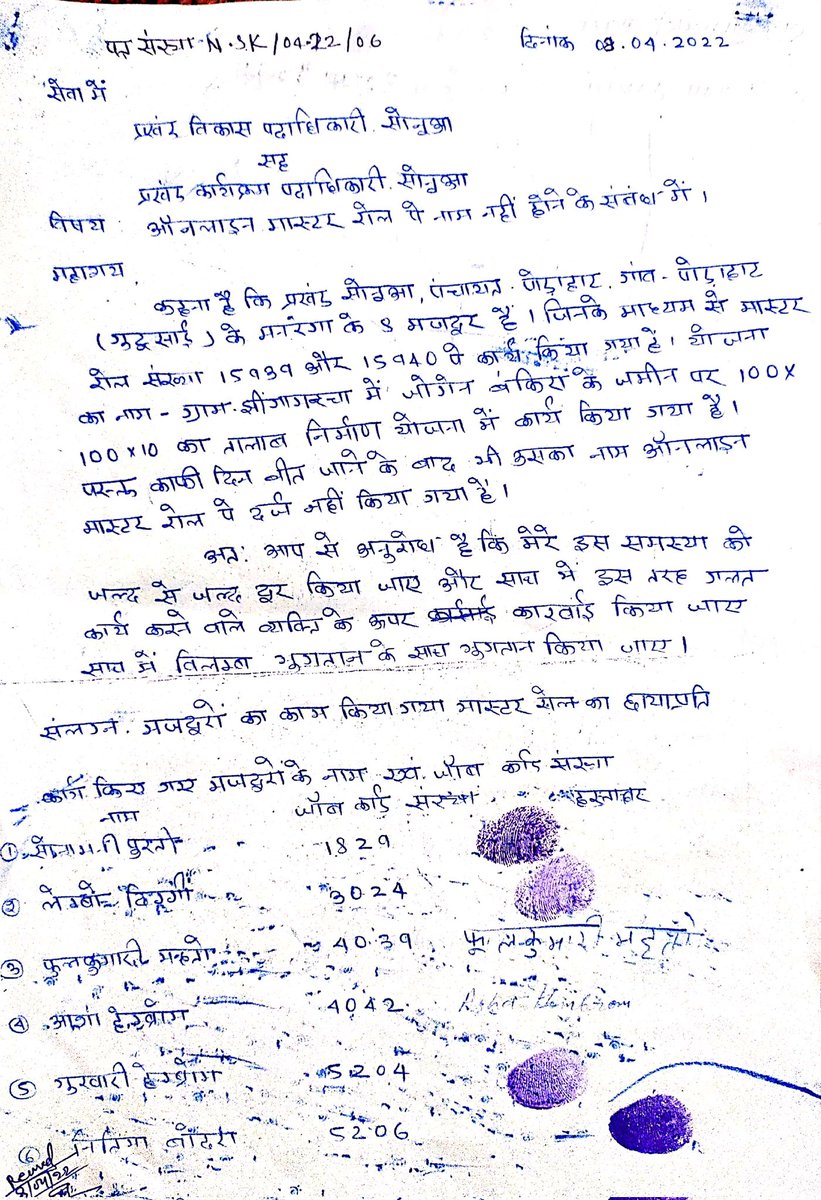 पत्र संख्या - N.SK/04-22/06 दिनांक 08.04.2022
सेवा में
प्रखंड विकास पदाधिकारी. सोनुआ
सह
प्रखंड कार्यक्रम पदाधिकारी. सोनुआ
विषय : ऑनलाइन मास्टर रोल पे नाम नहीं होने के संबंध में।
महाशय,
कहना है कि प्रखंड सोनुआ, पंचायत - पोड़ाहाट, गांव - पोड़ाहाट
(गुदुसाई) के मनरेगा के 8 मजदूर हैं। जिनके माध्यम से मास्टर
रोल संख्या 15939 और 15940 पे कार्य किया गया है। योजना
का नाम - ग्राम - झींगामरचा में जोगेन बंकिरा के जमीन पर 100X
100X10 का तालाब निर्माण योजना में कार्य किया गया है।
परन्तु काफी दिन बीत जाने के बाद भी उसका नाम ऑनलाइन
मास्टर रोल पे दर्ज नहीं किया गया है।
अतः आप से अनुरोध है कि मेरे इस समस्या को
जल्द से जल्द दूर किया जाए और साथ में इस तरह गलत
कार्य करने वाले व्यक्ति के ऊपर कारवाई किया जाए
साथ में विलम्ब भुगतान के साथ भुगतान किया जाए।
संलग्न. मजदूरों का काम किया गया मास्टर रोल का छायाप्रति
कार्य किए गए मजदुरो के नाम एवं. जॉब कार्ड संख्या
नाम जॉब कार्ड संख्या हस्ताक्षर
① सोनामनी पुरती 1829
② लेम्बो 3024
③ फुलकुमारी महतो 4039 फुलकुमारी महतो
④ आशा हेम्ब्रोम 4042
⑤ गुरुवारी हेम्ब्रोम 5204
⑥ बोदरा 5206